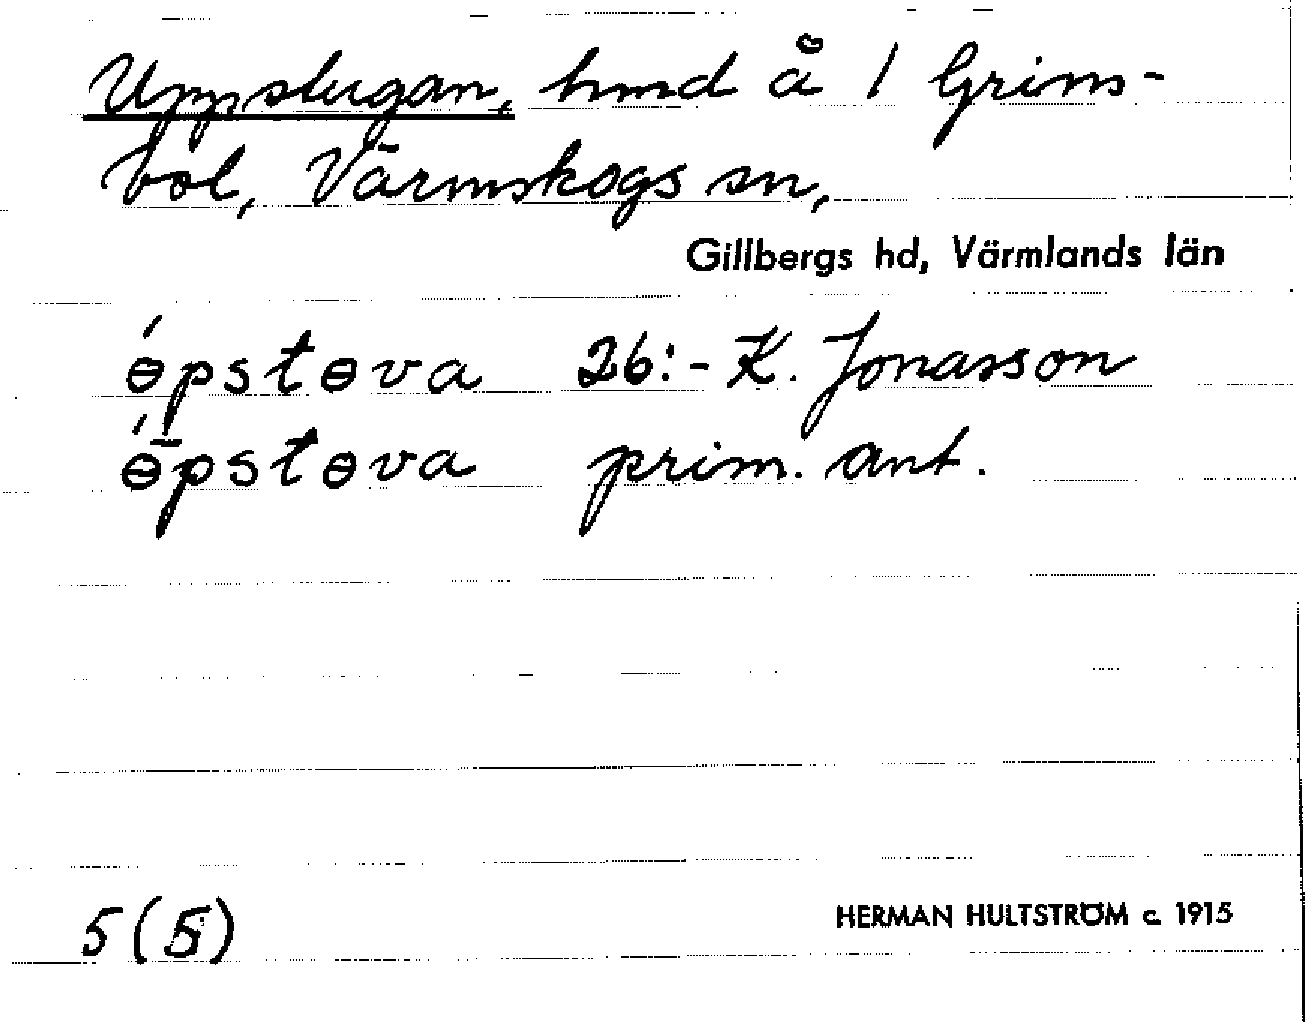 Uppstugan, hmd å 1 Grims-
bol, Värmskogs sn,
Gillbergs hd, Värmlands län
ɵ́pstɵva 26:- K. Jonasson
ɵ̄́pstɵva prim. ant.
5 (5)
HERMAN HULTSTRÖM c. 1915